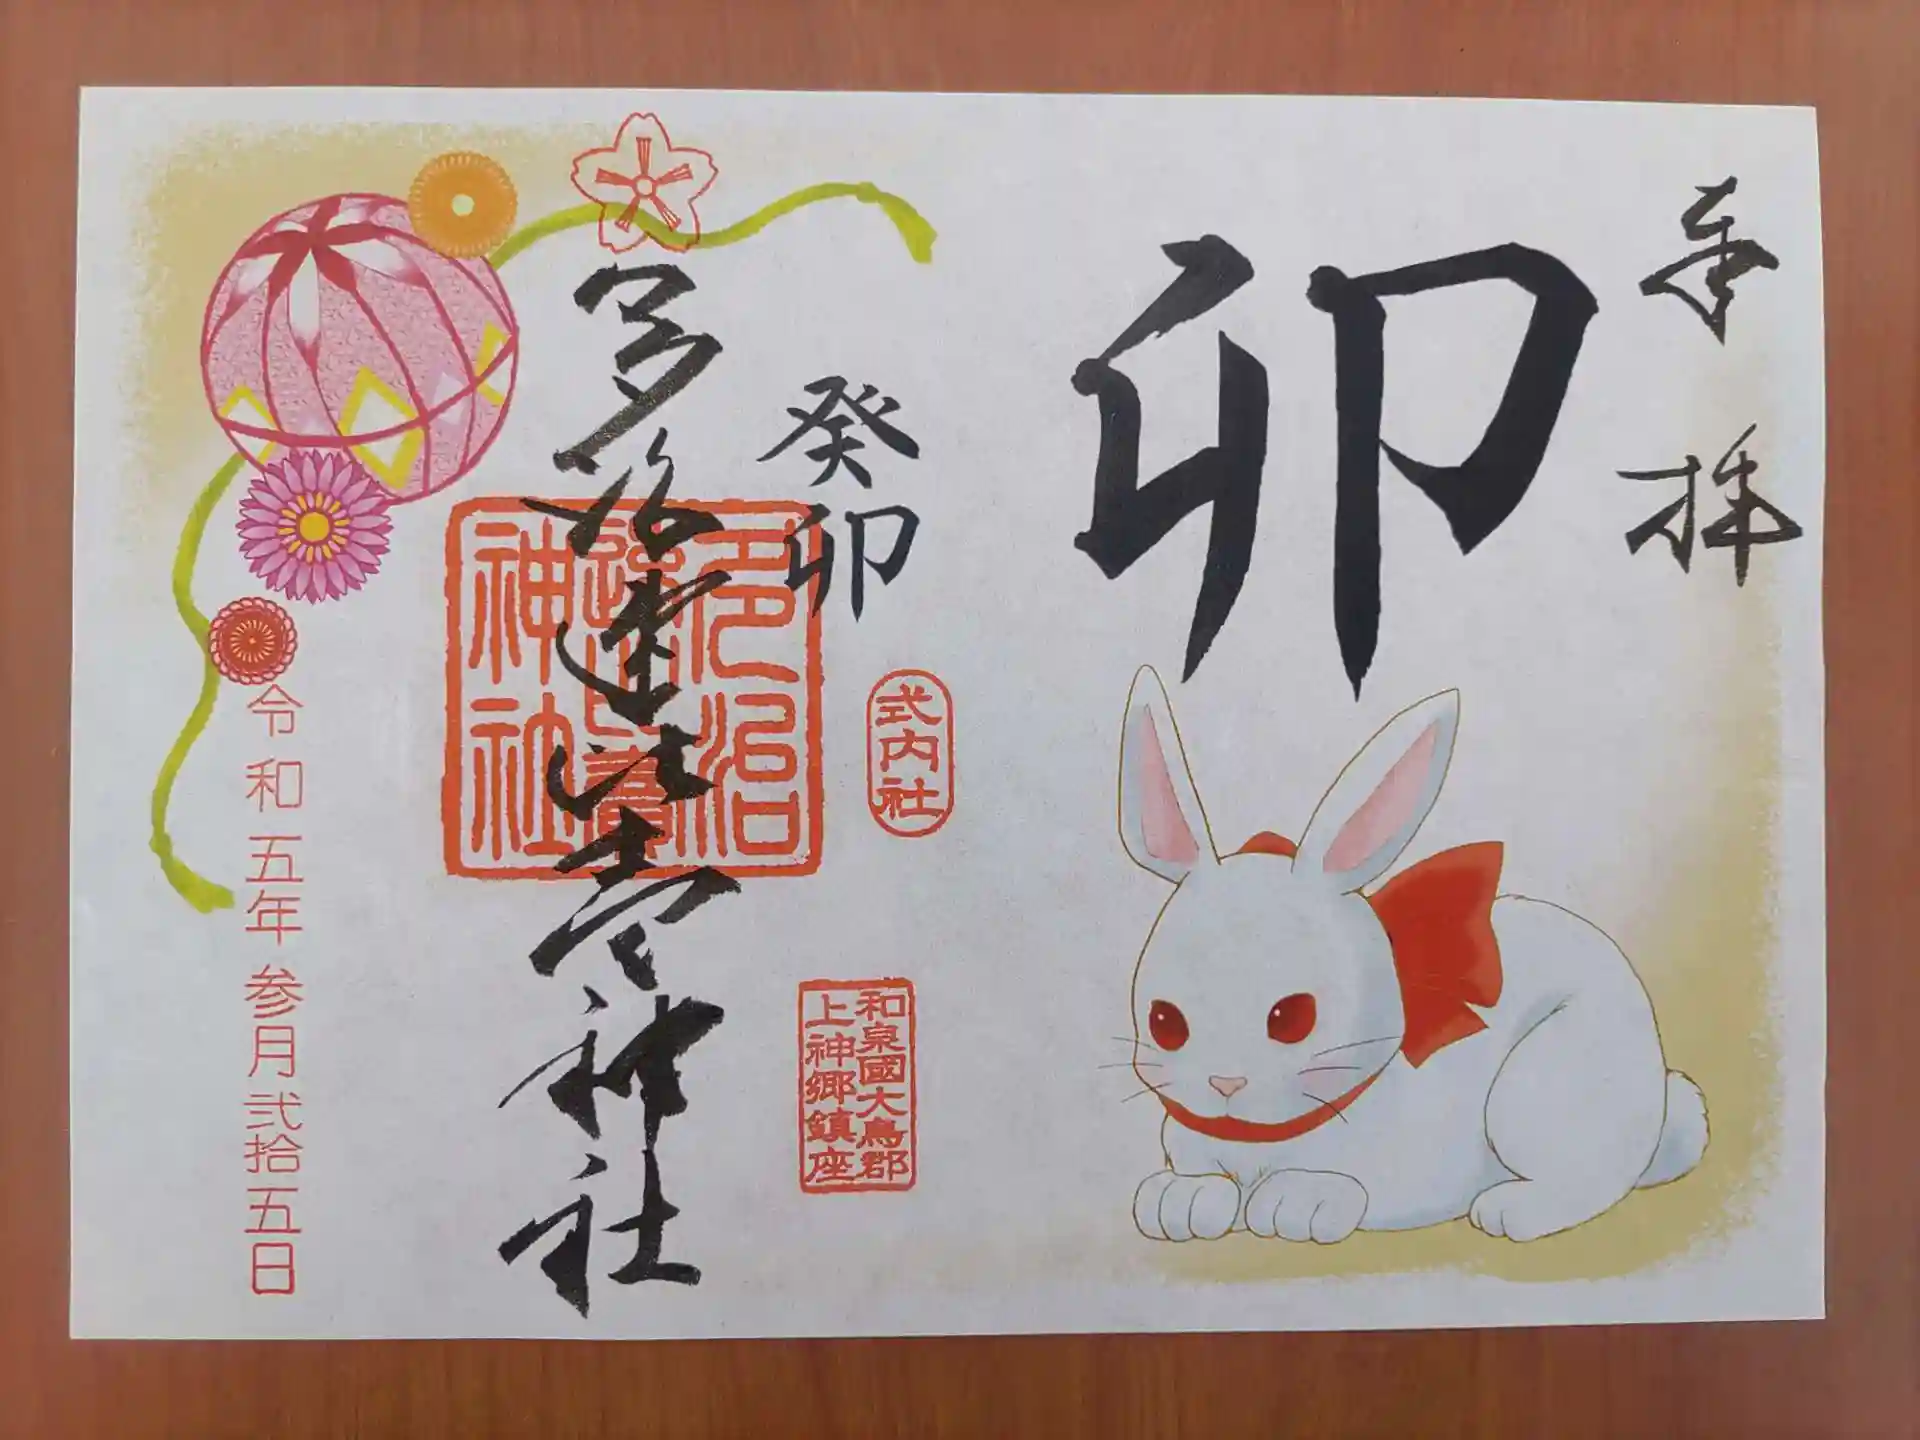 奉拝
卯
癸卯
式内社
和泉國大鳥郡
上神郷鎮座
多治速比売神社
多治
速比賣
神社
令和五年参月弐拾五日